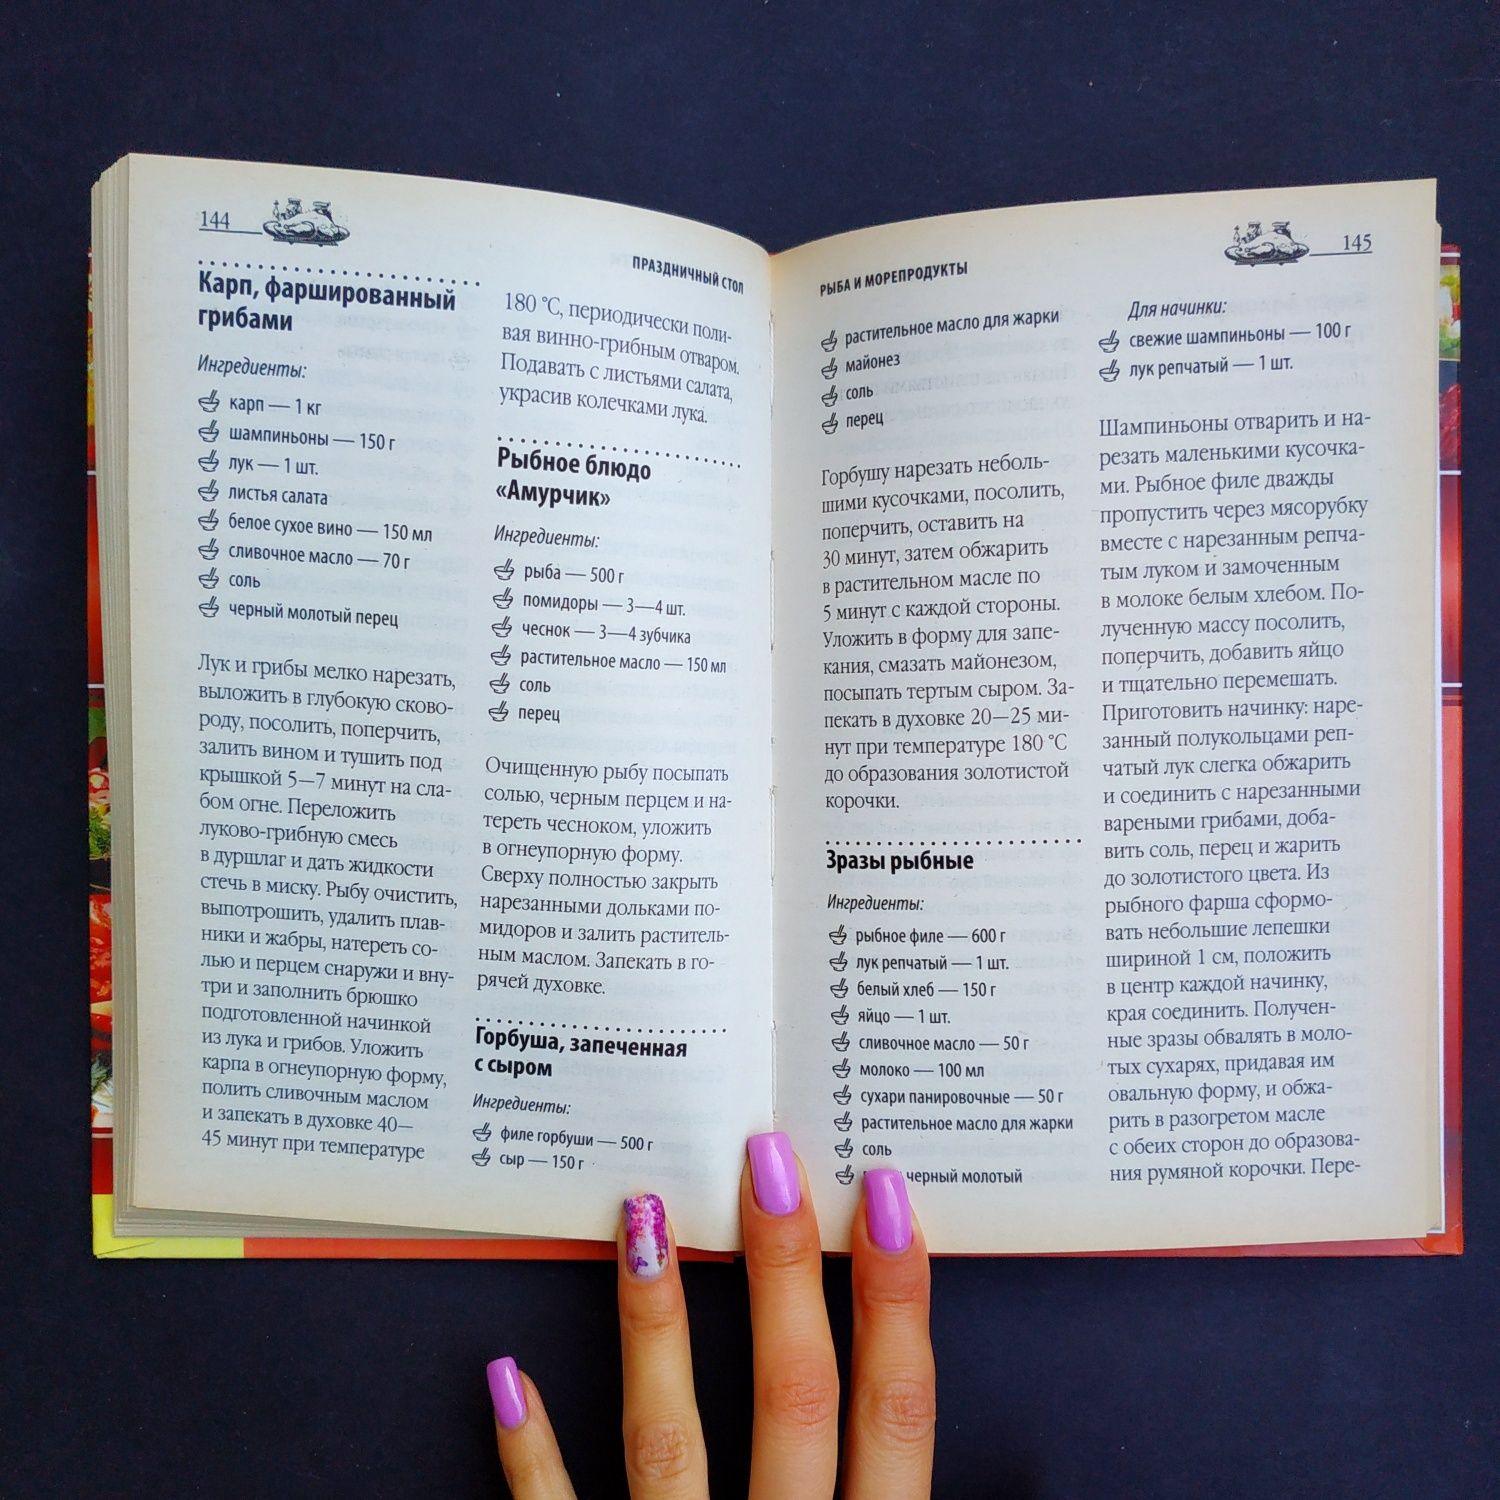 144
ПРАЗДНИЧНЫЙ СТОЛ
Карп, фаршированный
грибами
Ингредиенты:
карп — 1 кг
шампиньоны — 150 г
лук — 1 шт.
листья салата
белое сухое вино — 150 мл
сливочное масло — 70 г
соль
черный молотый перец
Лук и грибы мелко нарезать,
выложить в глубокую сково-
роду, посолить, поперчить,
залить вином и тушить под
крышкой 5—7 минут на сла-
бом огне. Переложить
луково-грибную смесь
в дуршлаг и дать жидкости
стечь в миску. Рыбу очистить,
выпотрошить, удалить плав-
ники и жабры, натереть со-
лью и перцем снаружи и вну-
три и заполнить брюшко
подготовленной начинкой
из лука и грибов. Уложить
карпа в огнеупорную форму,
полить сливочным маслом
и запекать в духовке 40—
45 минут при температуре
180 °С, периодически поли-
вая винно-грибным отваром.
Подавать с листьями салата,
украсив колечками лука.
Рыбное блюдо
«Амурчик»
Ингредиенты:
рыба — 500 г
помидоры — 3—4 шт.
чеснок — 3—4 зубчика
растительное масло — 150 мл
соль
перец
Очищенную рыбу посыпать
солью, черным перцем и на-
тереть чесноком, уложить
в огнеупорную форму.
Сверху полностью закрыть
нарезанными дольками по-
мидоров и залить раститель-
ным маслом. Запекать в го-
рячей духовке.
Горбуша, запеченная
с сыром
Ингредиенты:
филе горбуши — 500 г
сыр — 150 г
РЫБА И МОРЕПРОДУКТЫ
145
растительное масло для жарки
майонез
соль
перец
Горбушу нарезать неболь-
шими кусочками, посолить,
поперчить, оставить на
30 минут, затем обжарить
в растительном масле по
5 минут с каждой стороны.
Уложить в форму для запе-
кания, смазать майонезом,
посыпать тертым сыром. За-
пекать в духовке 20—25 ми-
нут при температуре 180 °С
до образования золотистой
корочки.
Зразы рыбные
Ингредиенты:
рыбное филе — 600 г
лук репчатый — 1 шт.
белый хлеб — 150 г
яйцо — 1 шт.
сливочное масло — 50 г
молоко — 100 мл
сухари панировочные — 50 г
растительное масло для жарки
соль
черный молотый
Для начинки:
свежие шампиньоны — 100 г
лук репчатый — 1 шт.
Шампиньоны отварить и на-
резать маленькими кусочка-
ми. Рыбное филе дважды
пропустить через мясорубку
вместе с нарезанным репча-
тым луком и замоченным
в молоке белым хлебом. По-
лученную массу посолить,
поперчить, добавить яйцо
и тщательно перемешать.
Приготовить начинку: наре-
занный полукольцами реп-
чатый лук слегка обжарить
и соединить с нарезанными
вареными грибами, доба-
вить соль, перец и жарить
до золотистого цвета. Из
рыбного фарша сформо-
вать небольшие лепешки
шириной 1 см, положить
в центр каждой начинку,
края соединить. Получен-
ные зразы обвалять в моло-
тых сухарях, придавая им
овальную форму, и обжа-
рить в разогретом масле
с обеих сторон до образова-
ния румяной корочки. Пере-